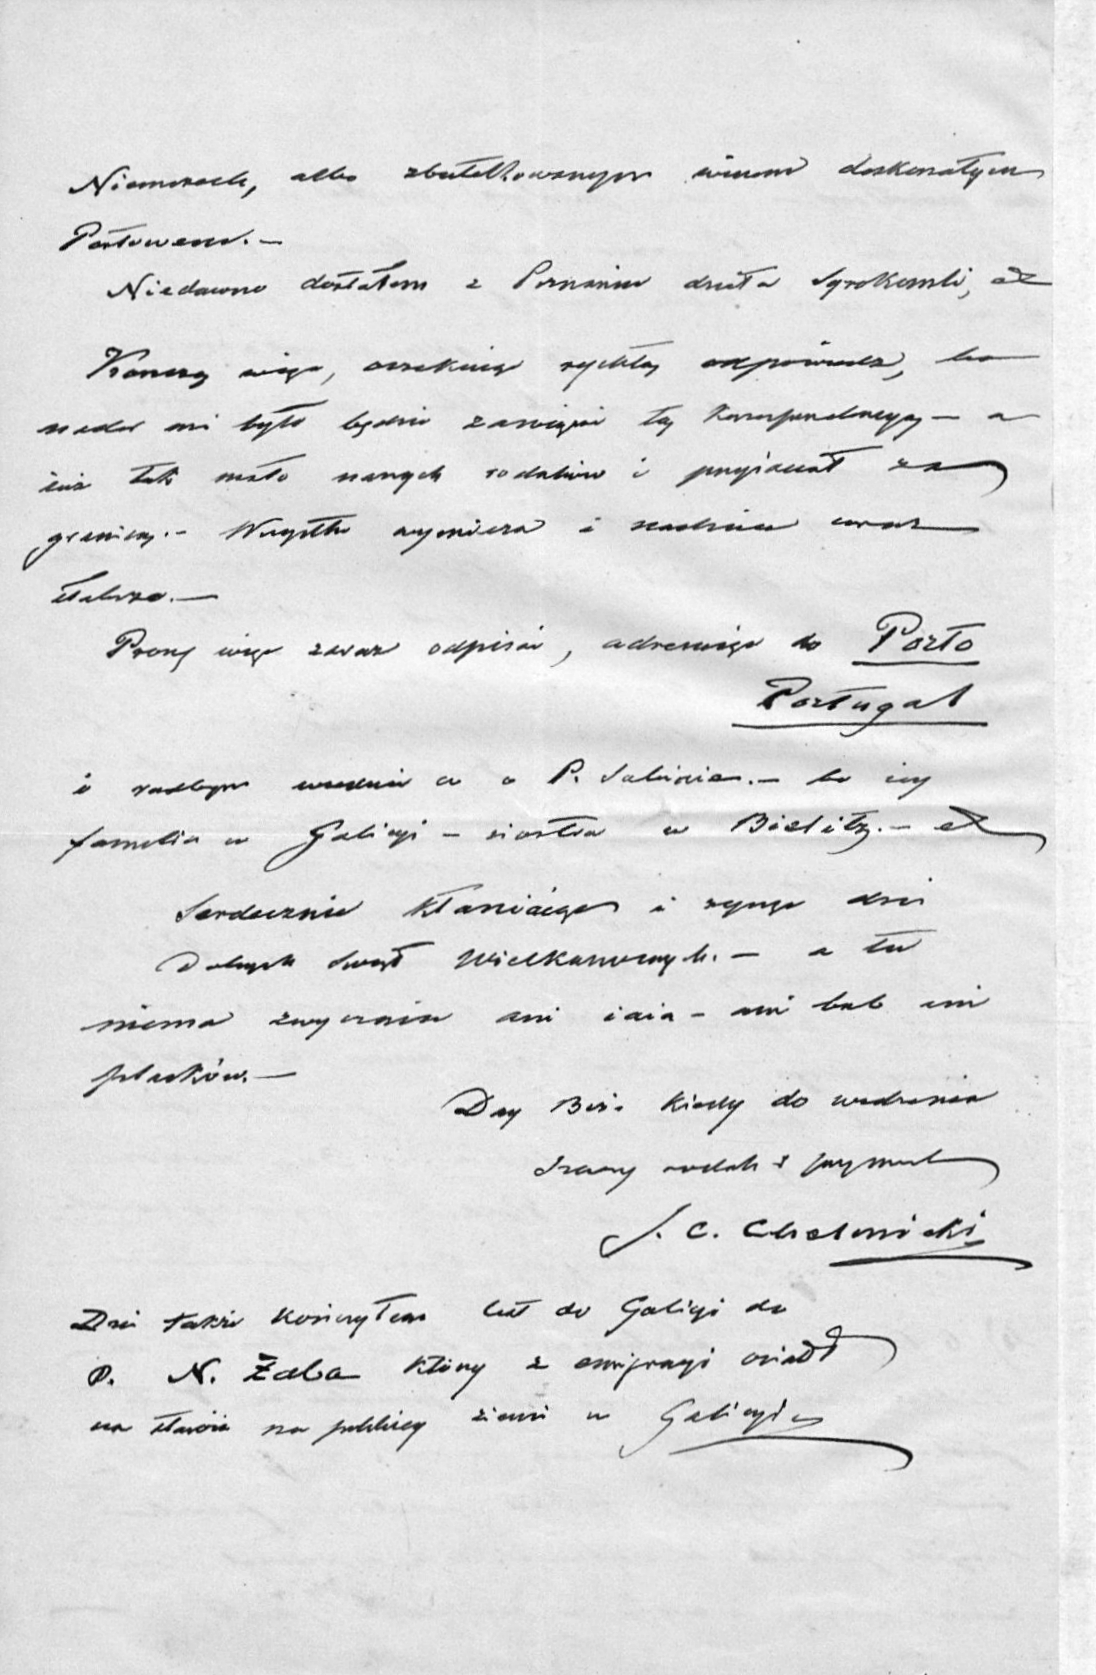 Niemczech, albo zbutelkowanym winem doskonałym
Portowem. —
Niedawno dostałem z Poznania dzieła Syrokomli, et
Kończę więc, oczekuję rychłej odpowiedz, bo
miło było będzie zawiązać tę korespondencyę — a
iuż tak mało naszych rodaków i przyiaciół za
granicą. — Wszystko wymiera i nadzieia coraz
słabsza. —
Proszę więc zaraz odpisać, adresuiąc do Porto
Portugal
i radbym wiedzieć co o P. Sabinie. — bo iey
familia w Galicyi — siostra w Bielitz. — et
Serdecznie kłaniaiąc i życzę dziś
Dobrych Swiąt Wielkanocnych. — a tu
niema zwyczaiu ani iaia — ani bab ani
placków. —
Day Boże kiedy do widzenia
Szczery rodak i przyiaciel
J. C. Chełmicki
Dziś także kończyłem list do Galicyi do
P. N. Żaba który z emigracyi osiadł
na starość na polskiey ziemi w Galicyi